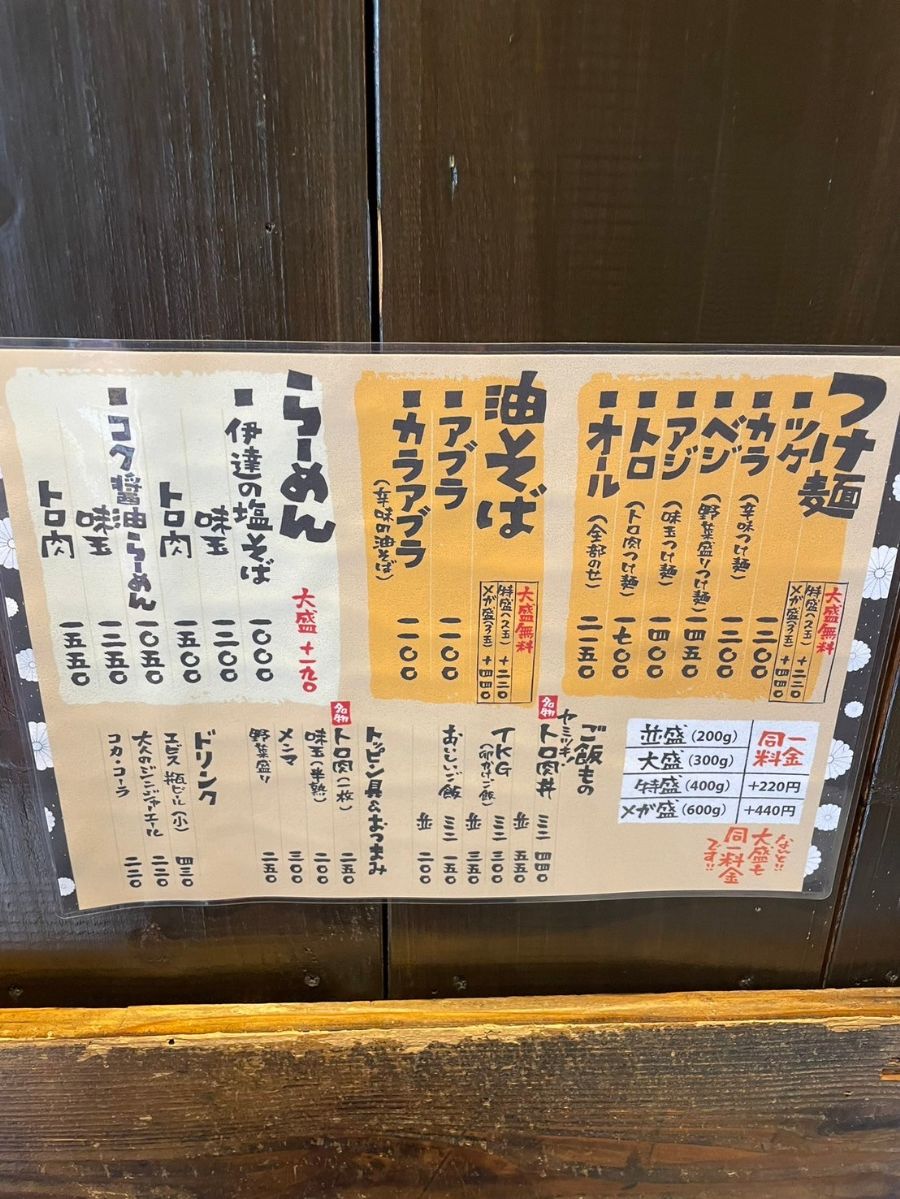 つけ麺
大盛無料
特盛(2玉) +二二〇
メガ盛(3玉) +四四〇
■ツケ 一一〇〇
■カラ(辛味つけ麺) 一二〇〇
■ベジ(野菜盛りつけ麺) 一四五〇
■アジ(味玉つけ麺) 一四〇〇
■トロ(トロ肉つけ麺) 一七〇〇
■オール(全部のせ) 二一五〇
油そば
大盛無料
特盛(2玉) +二二〇
メガ盛(3玉) +四四〇
■アブラ 一一〇〇
■カラアブラ(辛味の油そば) 一二〇〇
らーめん
大盛 +一九〇
■伊達の塩そば 一〇〇〇
味玉 一二〇〇
トロ肉 一五〇〇
■コク醤油らーめん 一〇五〇
味玉 一二五〇
トロ肉 一五五〇
並盛(200g) 同一料金
大盛(300g)
特盛(400g) +220円
メガ盛(600g) +440円
なんと!!
大盛も
同一料金
です!!
ご飯もの
ヤミツキ!
名物
トロ肉丼 ミニ 四四〇
並 五五〇
TKG(卵かけご飯) ミニ 三〇〇
並 三五〇
おいしいご飯 ミニ 一五〇
並 二〇〇
トッピン具&おつまみ
名物
トロ肉(一枚) 二五〇
味玉(半熟) 二〇〇
メンマ 三〇〇
野菜盛り 二五〇
ドリンク
エビス 瓶ビール(小) 四三〇
大人のジンジャーエール 二二〇
コカ・コーラ 二二〇